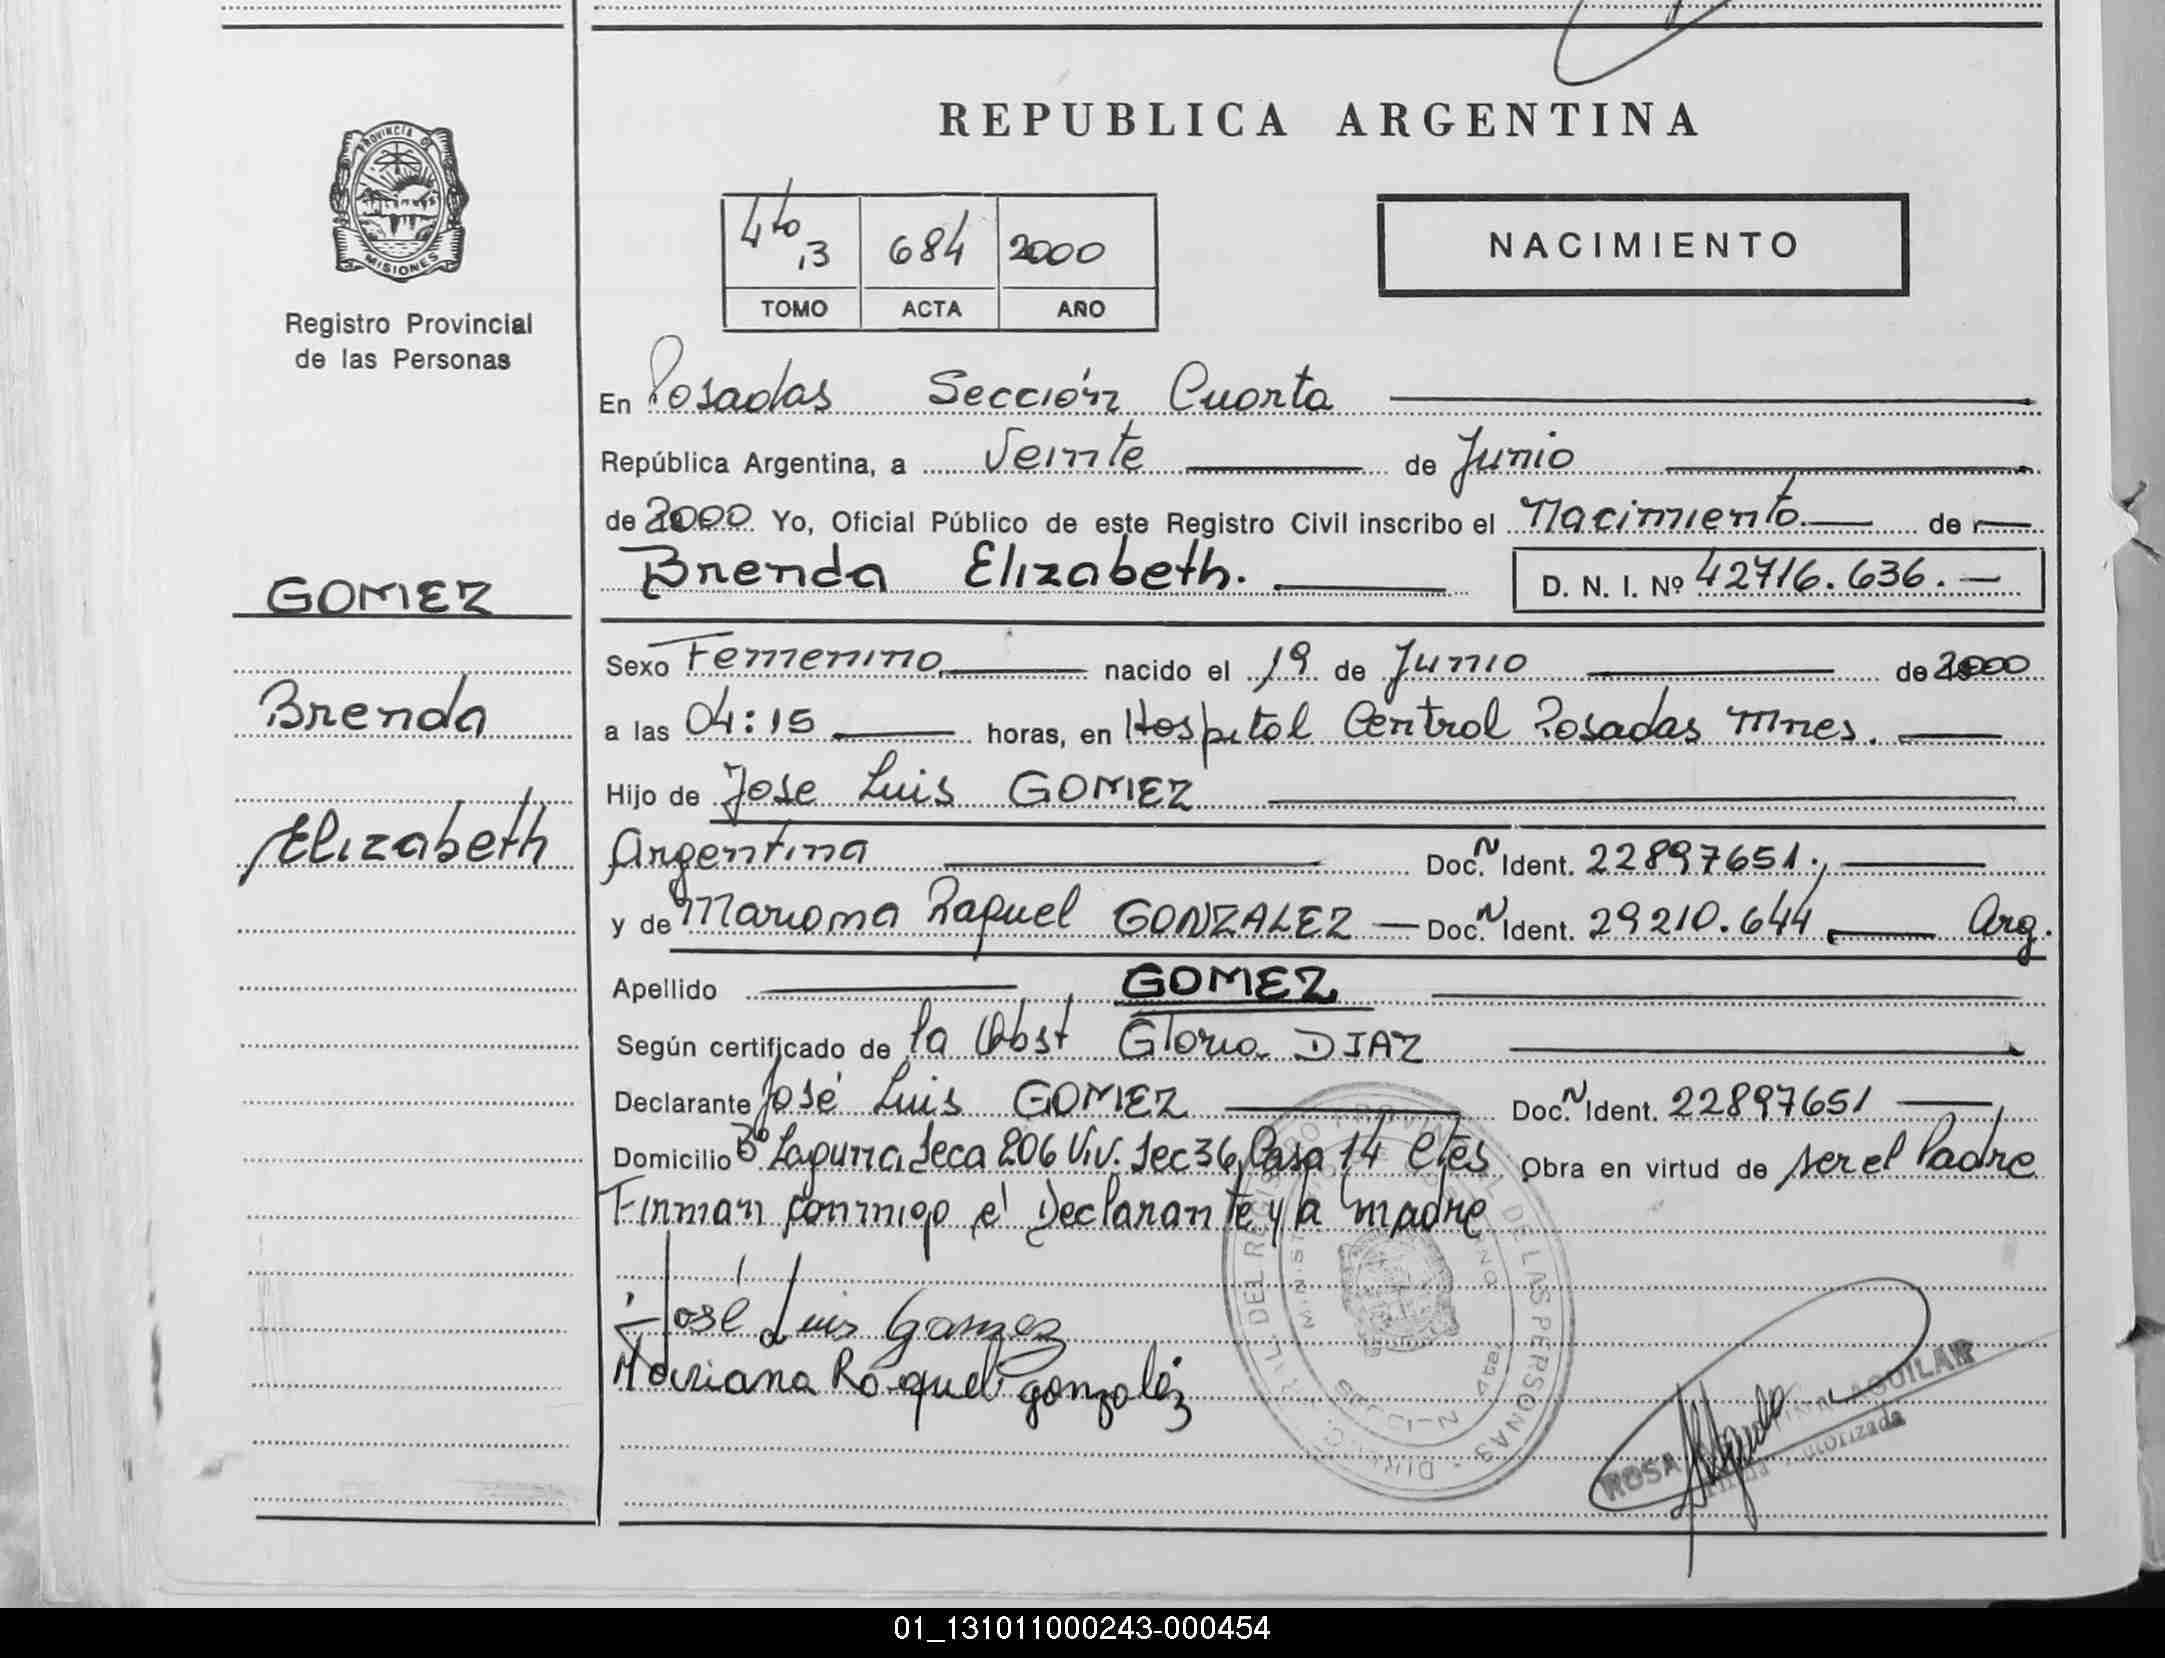 REPUBLICA ARGENTINA
PROVINCIA DE
MISIONES
Registro Provincial
de las Personas
4to 13 684 2000
TOMO ACTA AÑO
NACIMIENTO
En Posadas Sección Cuarta
República Argentina, a Veinte de Junio
de 2000 Yo, Oficial Público de este Registro Civil inscribo el Nacimiento de
GOMEZ
Brenda
Elizabeth
Brenda Elizabeth. D. N. I. Nº 42716.636.
Sexo Femenino nacido el 19 de Junio de 2000
a las 04:15 horas, en Hospital Central Posadas Mnes.
Hijo de Jose Luis GOMEZ
Argentina Doc. N Ident. 22897651.
y de Mariana Raquel GONZALEZ Doc. N Ident. 29210.644 Arg.
Apellido GOMEZ
Según certificado de la Obst Gloria DIAZ
Declarante José Luis GOMEZ Doc. N Ident. 22897651
Domicilio Bº Laguna Seca 206 Viv. Sec 36 Casa 14 Ctes Obra en virtud de ser el Padre
Firman conmigo el Declarante y la madre
José Luis Gomez
Mariana Raquel gonzaléz
DEL REGISTRO PROVINCIAL DE LAS PERSONAS
ROSA AGUILAR
01_131011000243-000454